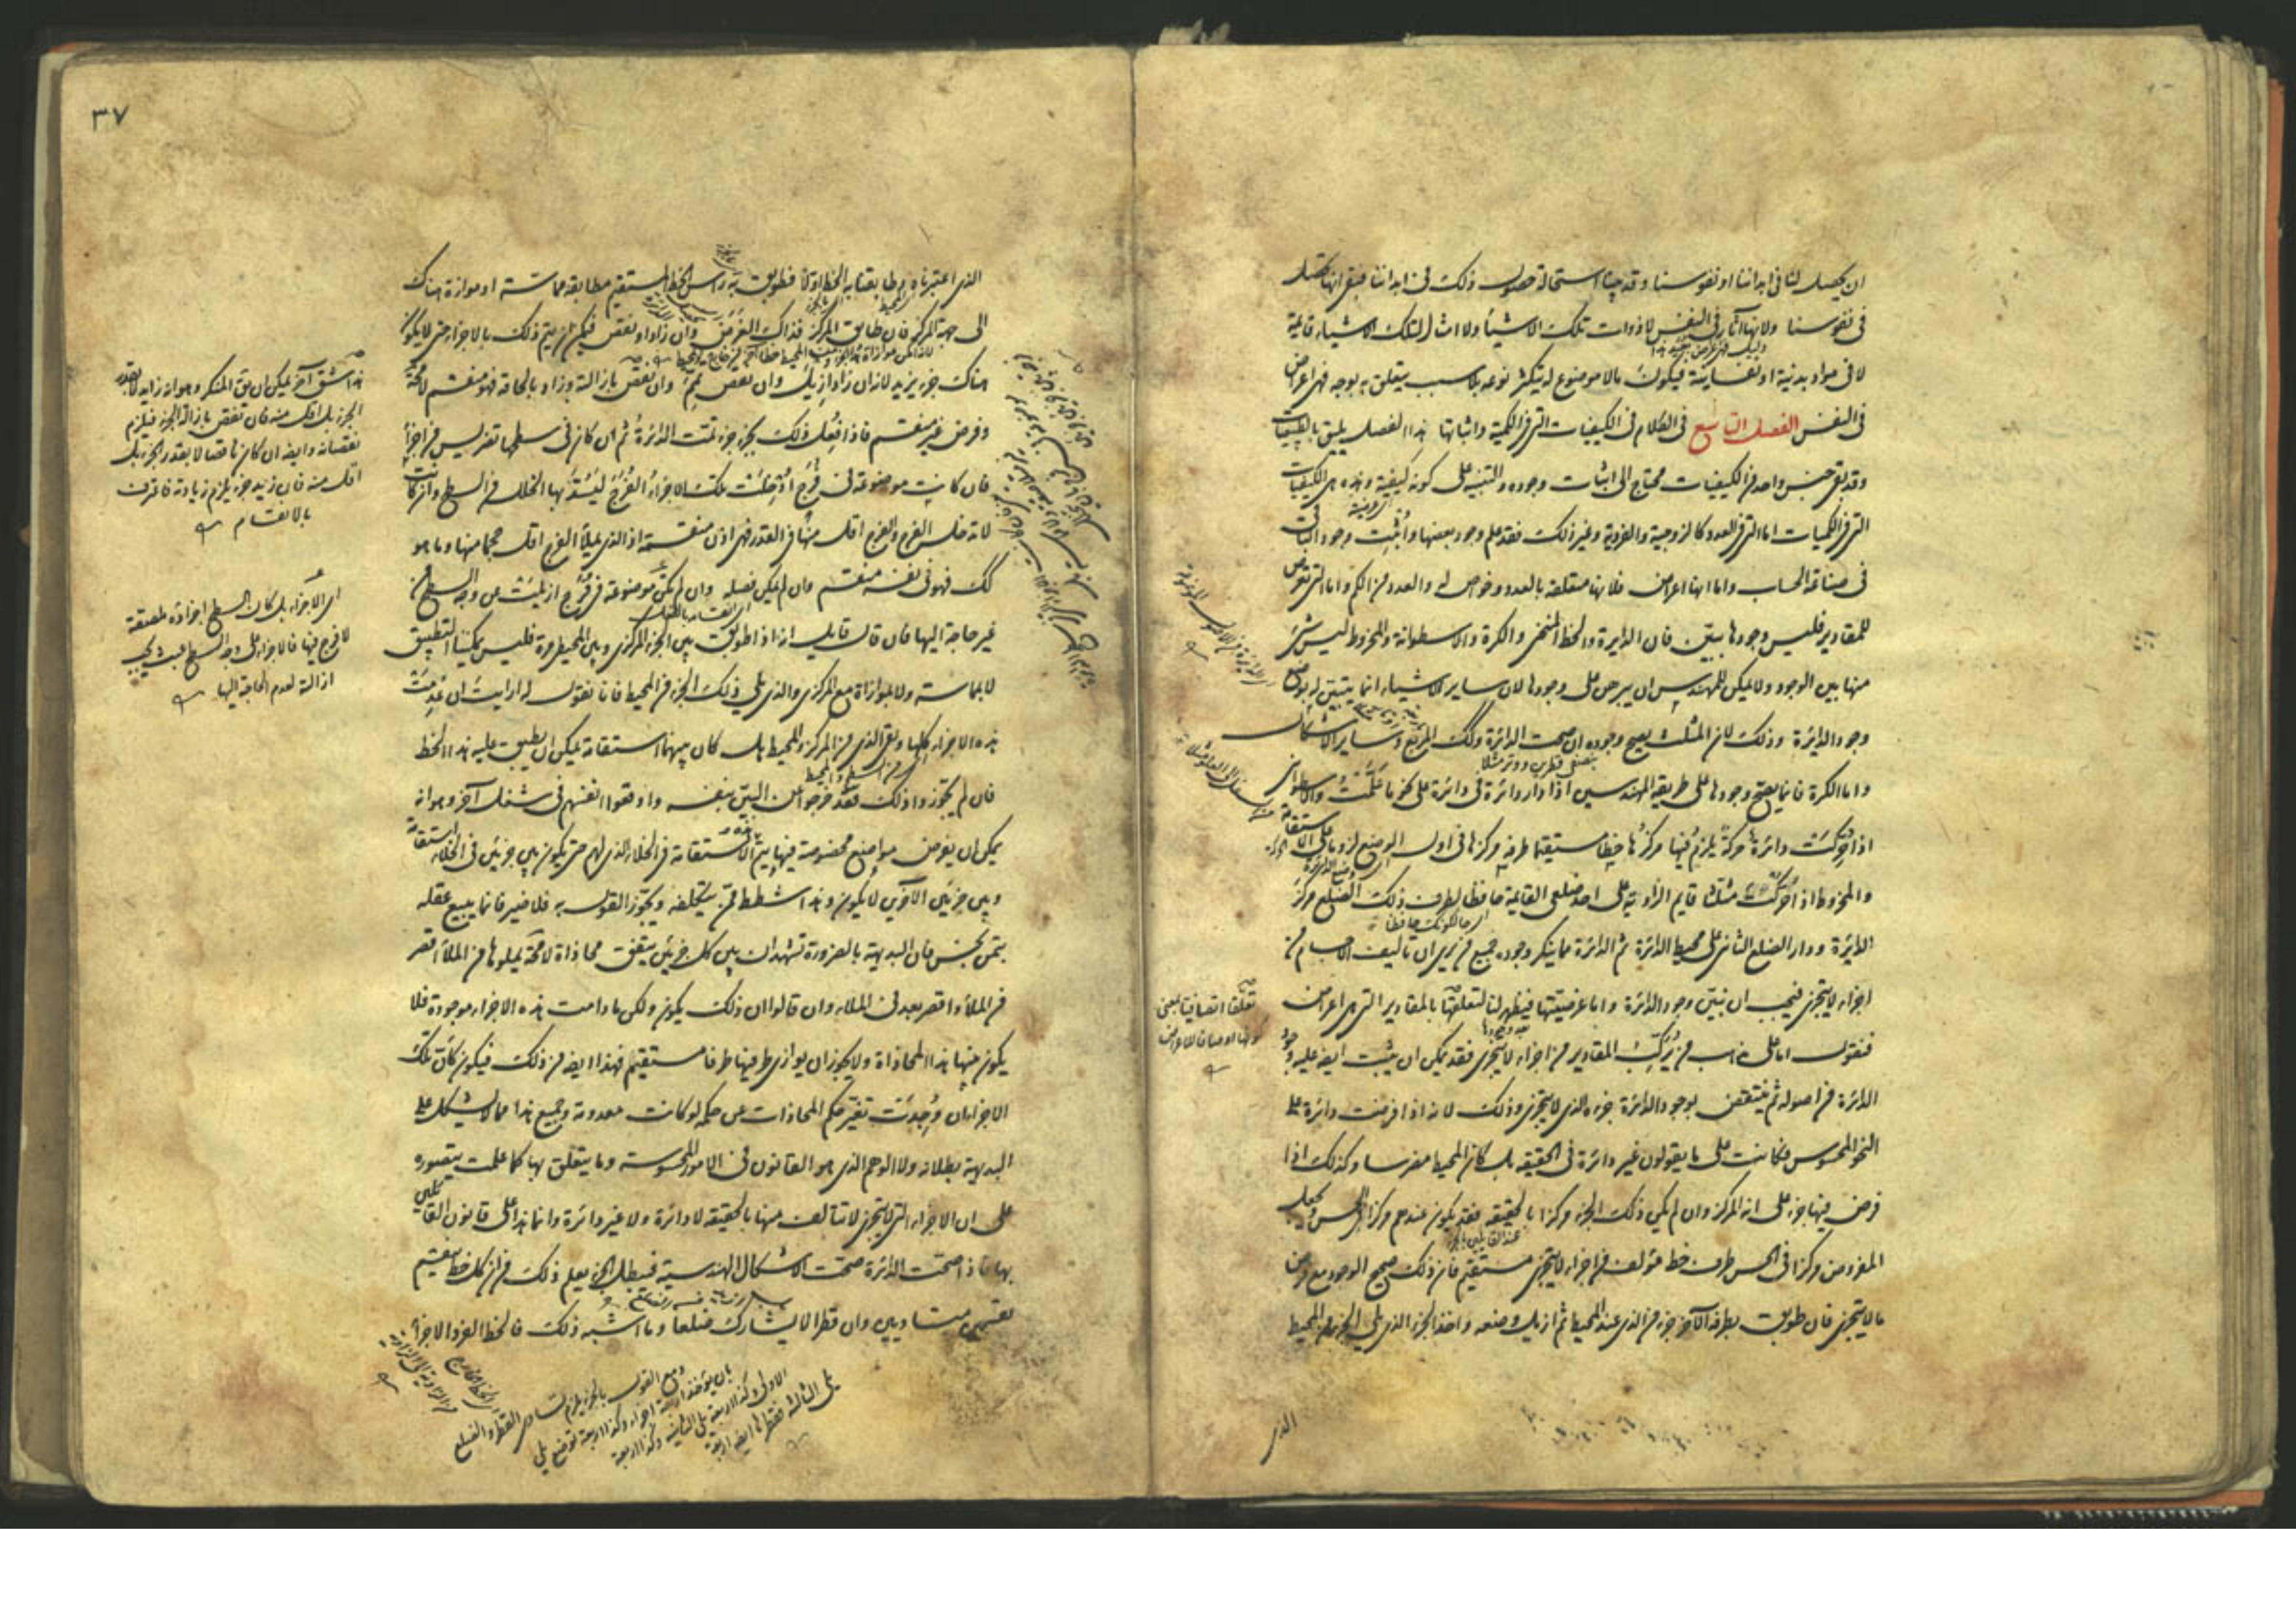 ان يحصل لنا فى ابداننا او نفوسنا وقد بينا استحالة حصول ذلك فى ابداننا فبقى انها تحصل
فى نفوسنا ولانها آثار فى النفس لا ذوات تلك الاشياء ولا امثال لتلك الاشياء قائمة
لا فى مواد بدنية او نفسانية فيكون ما لا موضوع له يتكثر نوعه بلا سبب يتعلق به بوجه فهى اعراض
فى النفس الفصل التاسع فى الكلام فى الكيفيات التى فى الكمية واثباتها هذا الفصل يليق بالطبيعيات
وقد بقى جنس واحد من الكيفيات محتاج الى اثبات وجوده والتنبيه على كونه كيفية وهذه هى الكيفيات
التى فى الكميات اما التى فى العدد كالزوجية والفردية وغير ذلك فقد علم وجود بعضها واثبت وجود الباقى
فى صناعة الحساب واما انها اعراض فلانها متعلقة بالعدد وخواص له والعدد من الكم واما التى تعرض
للمقادير فليس وجودها ببين فان الدايرة والخط المنحنى والكرة والاسطوانة والمخروط ليس شئ
منها بين الوجود ولا يمكن للمهندس ان يبرهن على وجودها لان ساير الاشياء انما يتبين له بوضع
وجود الدايرة وذلك لان المثلث يصح وجوده ان صحت الدائرة وكك المربع وساير الاشكال
واما الكرة فانما يصح وجودها على طريقة المهندسين اذا ادار دائرة فى دائرة على نحو ما علمت والاسطوانى
اذا حركت دائرة حركة يلزم فيها مركزها خطا مستقيما طرفه مركزها فى اول الوضع لزوما على الاستقامة
والمخروط اذا حركت مثلثا قايم الزاوية على احد ضلعى القايمة حافظا لطرف ذلك الضلع مركز
الدايرة ودار الضلع الثانى على محيط الدائرة ثم الدائرة مما ينكر وجوده جميع من يرى ان تاليف الاجسام من
اجزاء لا يتجزى فيجب ان نبين وجود الدائرة واما عرضيتها فيظهر لنا لتعلقها بالمقادير التى هى اعراض
فنقول اما على مذهب من يركب المقادير من اجزاء لا يتجزى فقد يمكن ان يثبت ايضا عليه وجود
الدائرة من اصوله ثم ينتقض بوجود الدائرة جزءه الذى لا يتجزى وذلك لانه اذا فرضت دائرة على
النحو المحسوس فكانت على ما يقولون غير دائرة فى الحقيقه بل كان المحيط مضرسا وكذلك اذا
فرض فيها جزء على انه المركز وان لم يكن ذلك الجزء مركزا بالحقيقه فقد يكون عندهم مركزا فى الحس ويجعل
المفروض مركزا فى الحس طرف خط مؤلف من اجزاء لا يتجزى مستقيم فان ذلك صحيح الوجود مع فرض
ما لا يتجزى فان طوبق بطرفه الآخر جزء من الذى عند المحيط ثم ازيل وضعه واخذ الجزء الذى يلى الجزء من المحيط
تعلقا اتصافيا بمعنى
الذى
٣٧
الذى اعتبرناه مطابقتا به الخط اولا فطوبق به راس الخط المستقيم مطابقه مماسة او موازاة هناك
الى جهة المركز فان طابق المركز فذاك الغرض وان زاد او نقص فيمكن ان يتم ذلك بالاجزاء حتى لا يكون
هناك جزء يزيد لانه ان زاد ازيل وان نقص تمم وان نقص بازالته وزاد بالحاقه فهو منقسم لا محة
وفرض غير منقسم فاذا فعل ذلك بجزء جزء تمت الدائرة ثم ان كان فى سطحها تضريس من اجزاء
فان كانت موضوعة فى فرج ادخلت تلك الاجزاء الفرج ليسد بها الخلل من السطح وان كانت
لا تدخل الفرج والفرج اقل منها فى القدر فهى اذن منقسمة اذ الذى يملأ الفرج اقل حجما منها وما هو
كك فهو فى نفسه منقسم وان لم يمكن فصله وان لم يكن موضوعة فى فرج ازيلت عن وجه السطح من
غير حاجة اليها فان قال قايل انه اذا طوبق بين الجزء المركزى وبين المحيطى مرة فليس يمكننا التطبيق
لا بمماسة ولا بموازاة مع المركزى والذى يلى ذلك الجزء من المحيط فانا نقول له ارايت ان عدمت
هذه الاجزاء كلها وبقى الذى من المركز والمحيط هل كان بينهما استقامة يمكن ان يطبق عليه هذا الخط
فان لم يجوزوا ذلك فقد خرجوا عن البين بنفسه واوقعوا انفسهم فى شغل آخر وهو انه
يمكن ان يفرض مواضع مخصوصة فيها يتم الاستقامة فى الخلاء الذى لهم حتى يكون بين جزئين فى الخلاء استقامة
وبين جزئين الآخرين لا يكون وهذا شطط ممن يتكلفه ويجوز القول به فلا ضير فانما يبيع عقله
بثمن بخس فان البديهة بالضرورة تشهد ان بين كل جزئين يتفق محاذاة لا محة يملؤها من الملأ اقصر
من الملأ واقصر بعد فى الملاء وان قالوا ان ذلك يكون ولكن ما دامت هذه الاجزاء موجودة فلا
يكون بينها هذا المحاذاة ولا يجوز ان يوازى طرفيها طرفا مستقيم فهذا ايضا من ذلك فيكون كأن تلك
الاجزاء ان وجدت تغير حكم المحاذات عن حكمه لو كانت معدومة وجميع هذا مما لا يشكل على
البديهة بطلانه ولا الوهم الذى هو القانون فى الامور المحسوسة وما يتعلق بها كما علمت يتصوره
على ان الاجزاء التى لا يتجزى لا تتألف منها بالحقيقه لا دائرة ولا غير دائرة وانما هذا على قانون القائلين
بها فاذا صحت الدائرة صحت الاشكال الهندسية فيبطل الجزء يعلم ذلك من ان كل خط ينقسم
بقسمين متساويين وان قطرا لا يشارك ضلعا وما اشبه ذلك فالخط الفرد الاجزاء
هذا شق آخر يمكن ان يق المنكر وهو انه زايد لا بقدر
الجزء بل اقل منه فان نقص بازالة الجزء فيلزم
نقصانه وايضا ان كان ناقصا لا بقدر الجزء بل
اقل منه فان زيد جزء يلزم زيادته فاعترف
بالانقسام
اى الاجزاء بل كان السطح اجزاؤه ملصقة
لا فرج فيها فالاجزاء على وجه السطح
ازالته لعدم الحاجة اليها
ومع القول بالجزء يلزم تساوى القطر والضلع
بان يؤخذ اربعة اجزاء وكذا اربعة توضع يلى
الاولى وكذا اربعة يلى الثانية وكذا اربعة
يلى الثالثة فقطرها ايضا اربعة